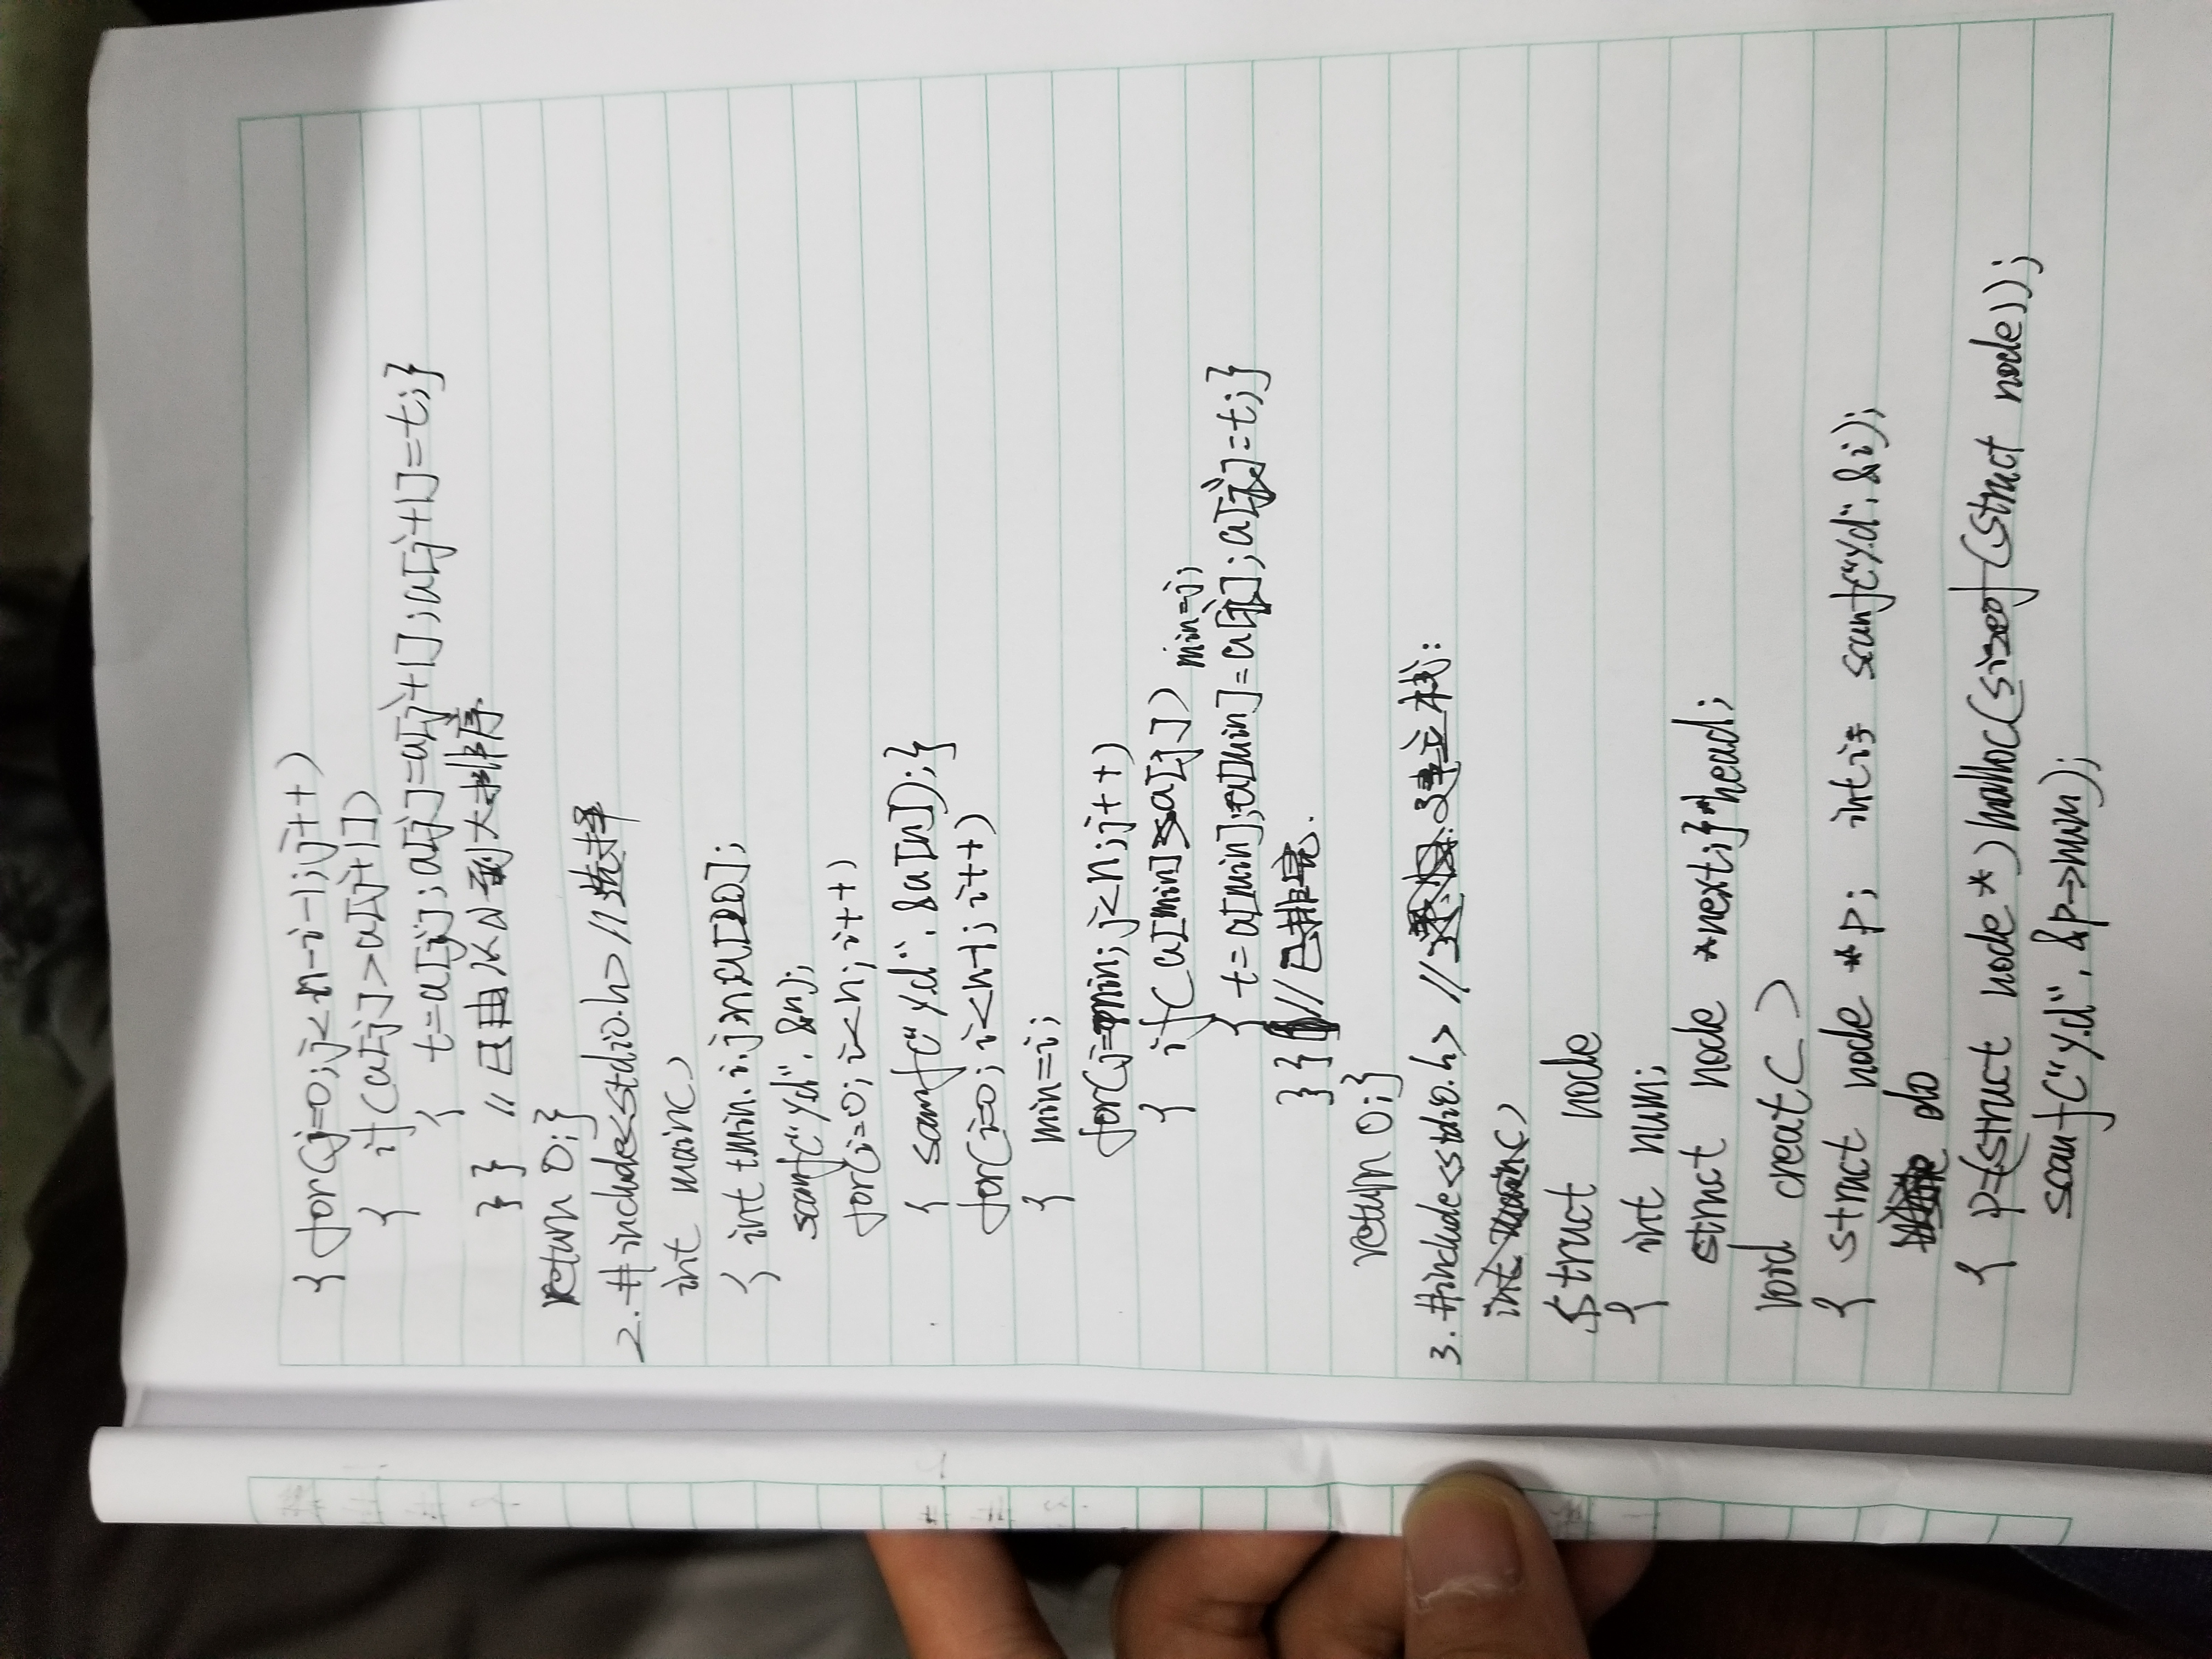 { for(j=0;j<n-i-1;j++)
{ if(a[j]>a[j+1])
{ t=a[j];a[j]=a[j+1];a[j+1]=t;}
}} //已由从小到大排序
return 0;}
2. #include<stdio.h> //选择
int main()
{ int t,min,i,j,n,a[20];
scanf("%d",&n);
for(i=0;i<n;i++)
{ scanf("%d",&a[n]);}
for(i=0;i<n-1;i++)
{ min=i;
for(j=min;j<n;j++)
{ if(a[min]>a[j]) min=j;
{ t=a[min];a[min]=a[j];a[j]=t;}
}} //已排完.
return 0;}
3. #include<stdio.h> // 建立栈:
int main()
struct node
{ int num;
struct node *next;}*head;
void creat( )
{ struct node *p; int i; scanf("%d",&i);
do
{ p=(struct node *)malloc(sizeof(struct node));
scanf("%d",&p->num);